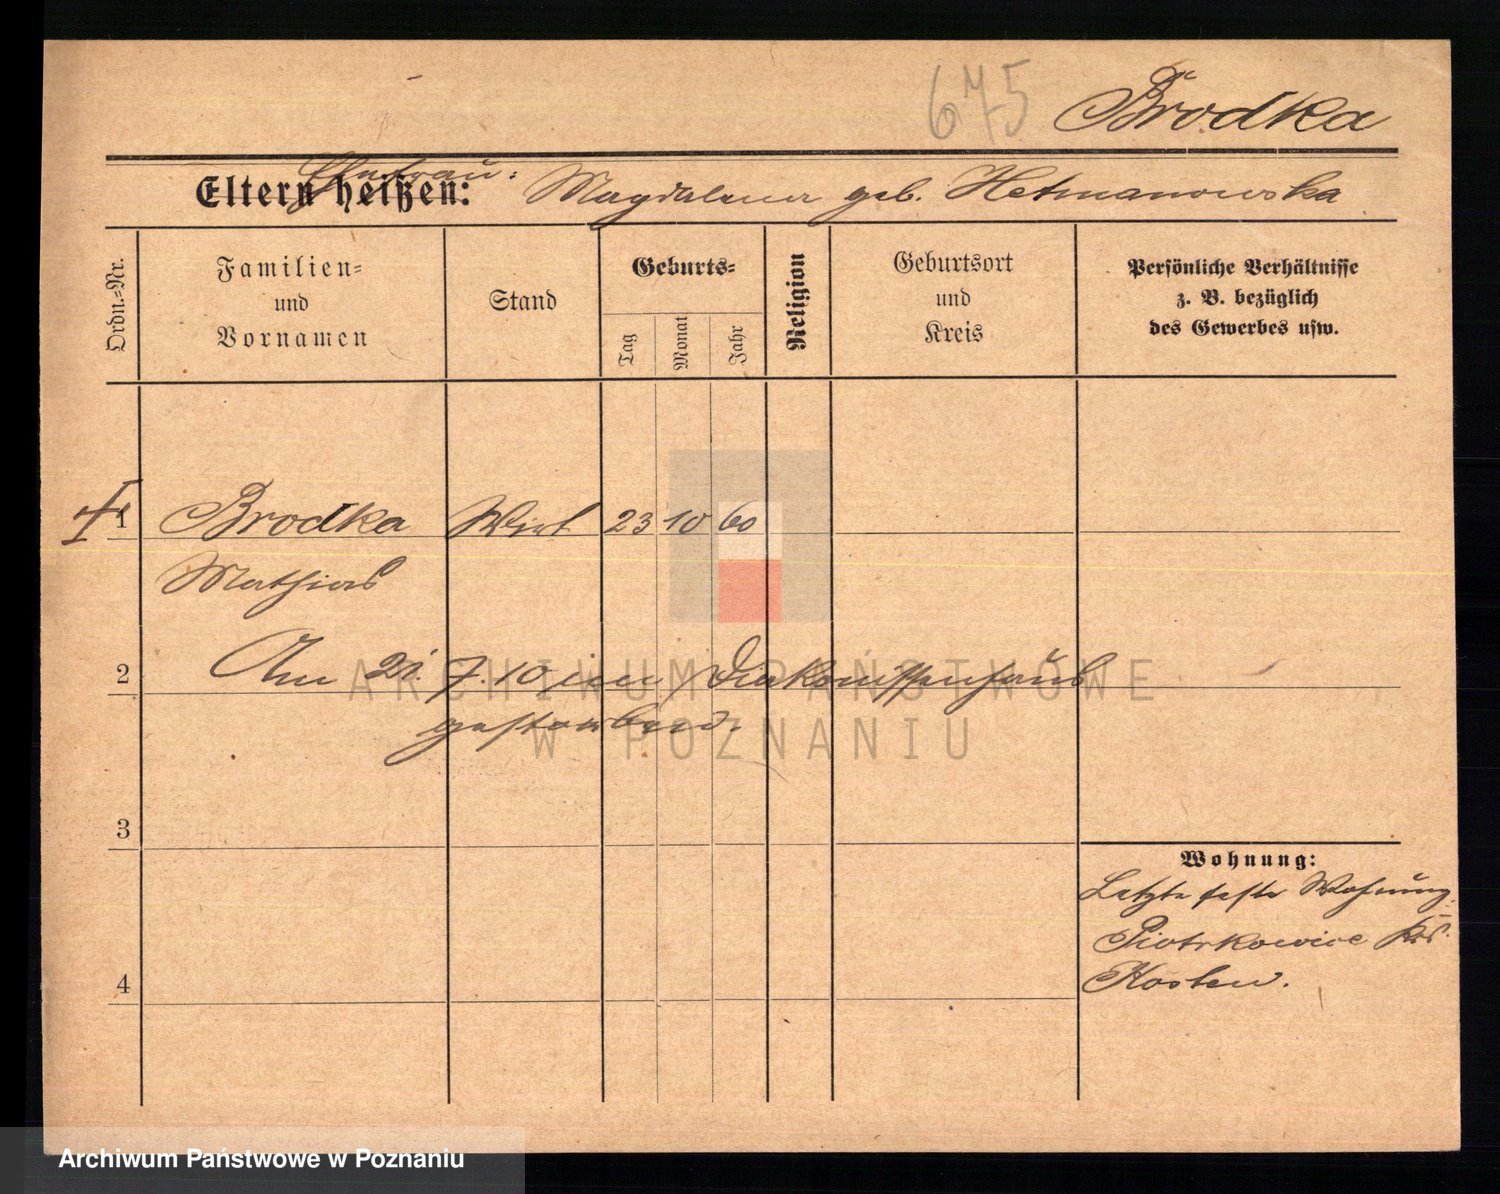 675 Brodka
Ehefrau:
Eltern heißen: Magdalena geb. Hetmanowska
Ordn.=Nr.
Familien=
und
Vornamen
Stand
Geburts=
Tag
Monat
Jahr
Religion
Geburtsort
und
Kreis
Persönliche Verhältnisse
z. B. bezüglich
des Gewerbes usw.
1 Brodka Wirt 23 10 60
Mathias
2 Am 21.7.10 im Diakonissenhaus
gestorben.
ARCHIWUM PAŃSTWOWE
W POZNANIU
3
Wohnung:
Letzte feste Wohnung
Piotrkowice Krs.
4 Kosten.
Archiwum Państwowe w Poznaniu